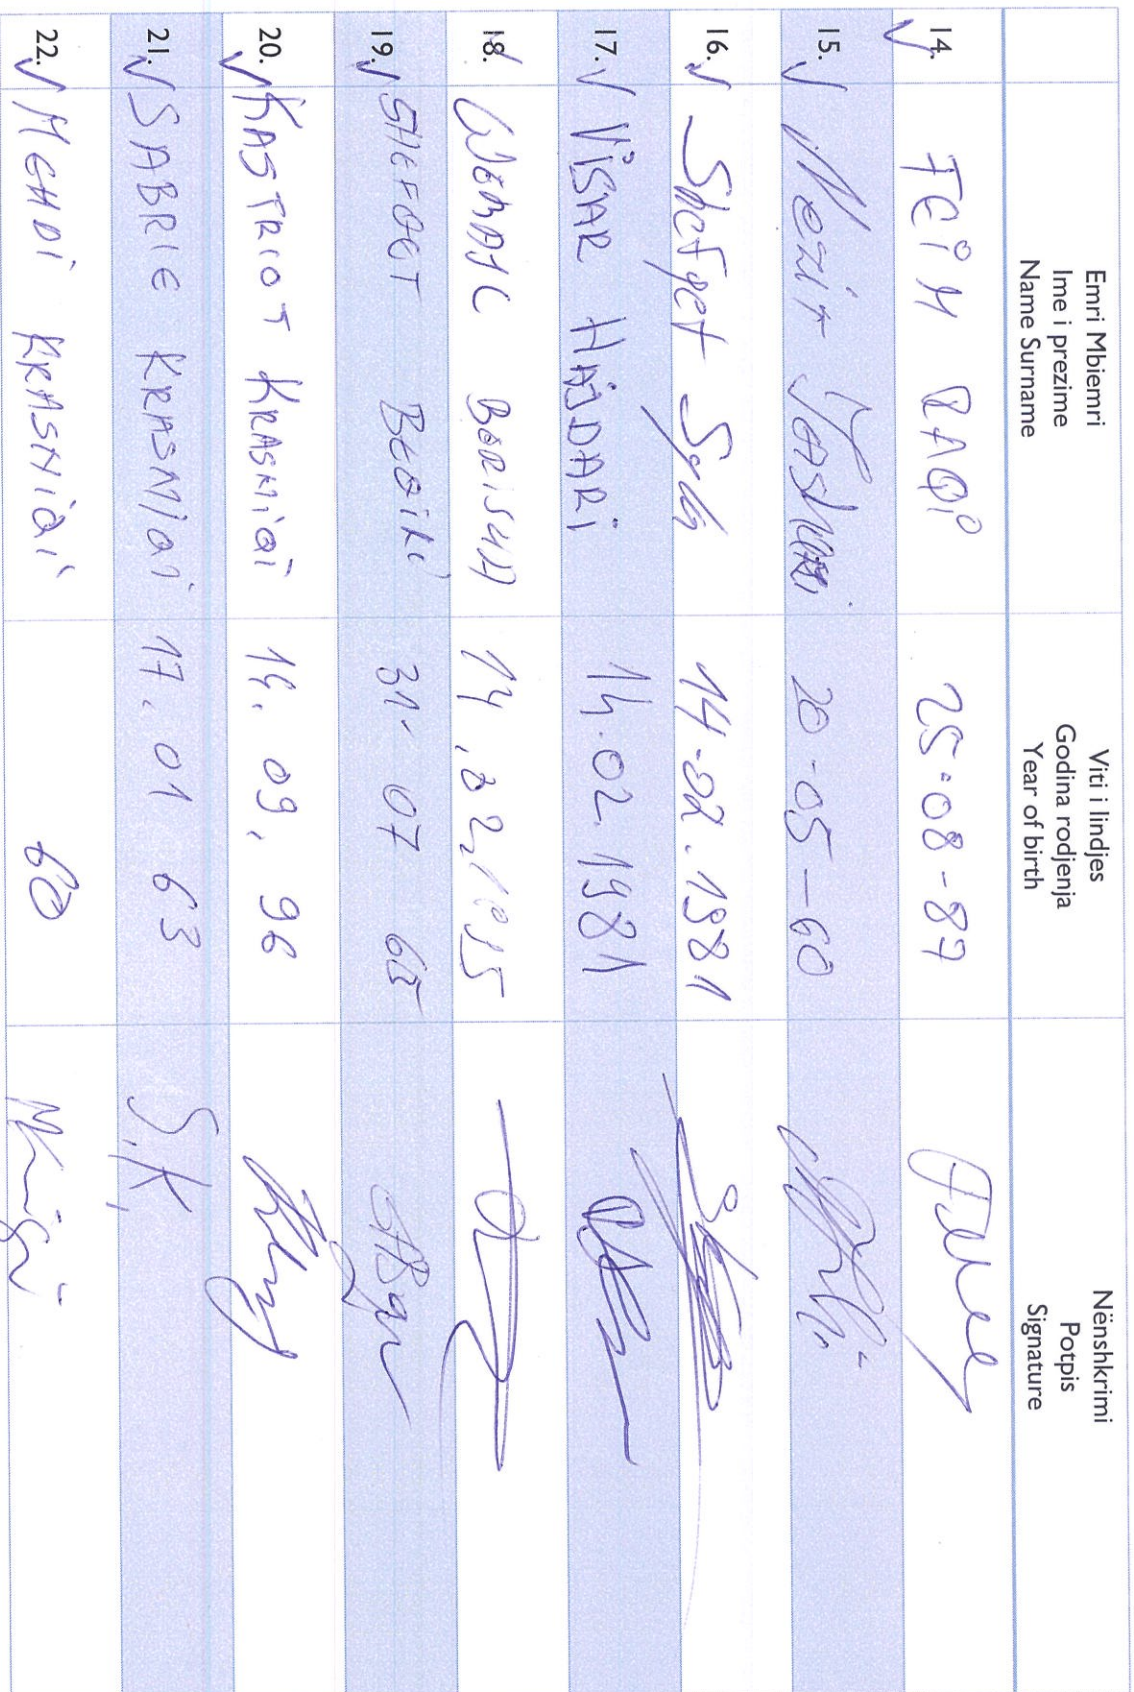 Emri Mbiemri
Ime i prezime
Name Surname
Viti i lindjes
Godina rodjenja
Year of birth
Nënshkrimi
Potpis
Signature
14. FEiM RAQi 25-08-87
15. Nezir 20-05-60
16. Shefqet Syla 14-02.1981
17. ViSAR HAJDARi 14.02.1981
18. BERiSHA
19. SHEFQET BEQiRi 31-07 65
20. KASTRIOT KRASNiQi 14.09.96
21. SABRIE KRASNiQi 17.01 63 S.K,
22. MEHDi KRASNiQi 60